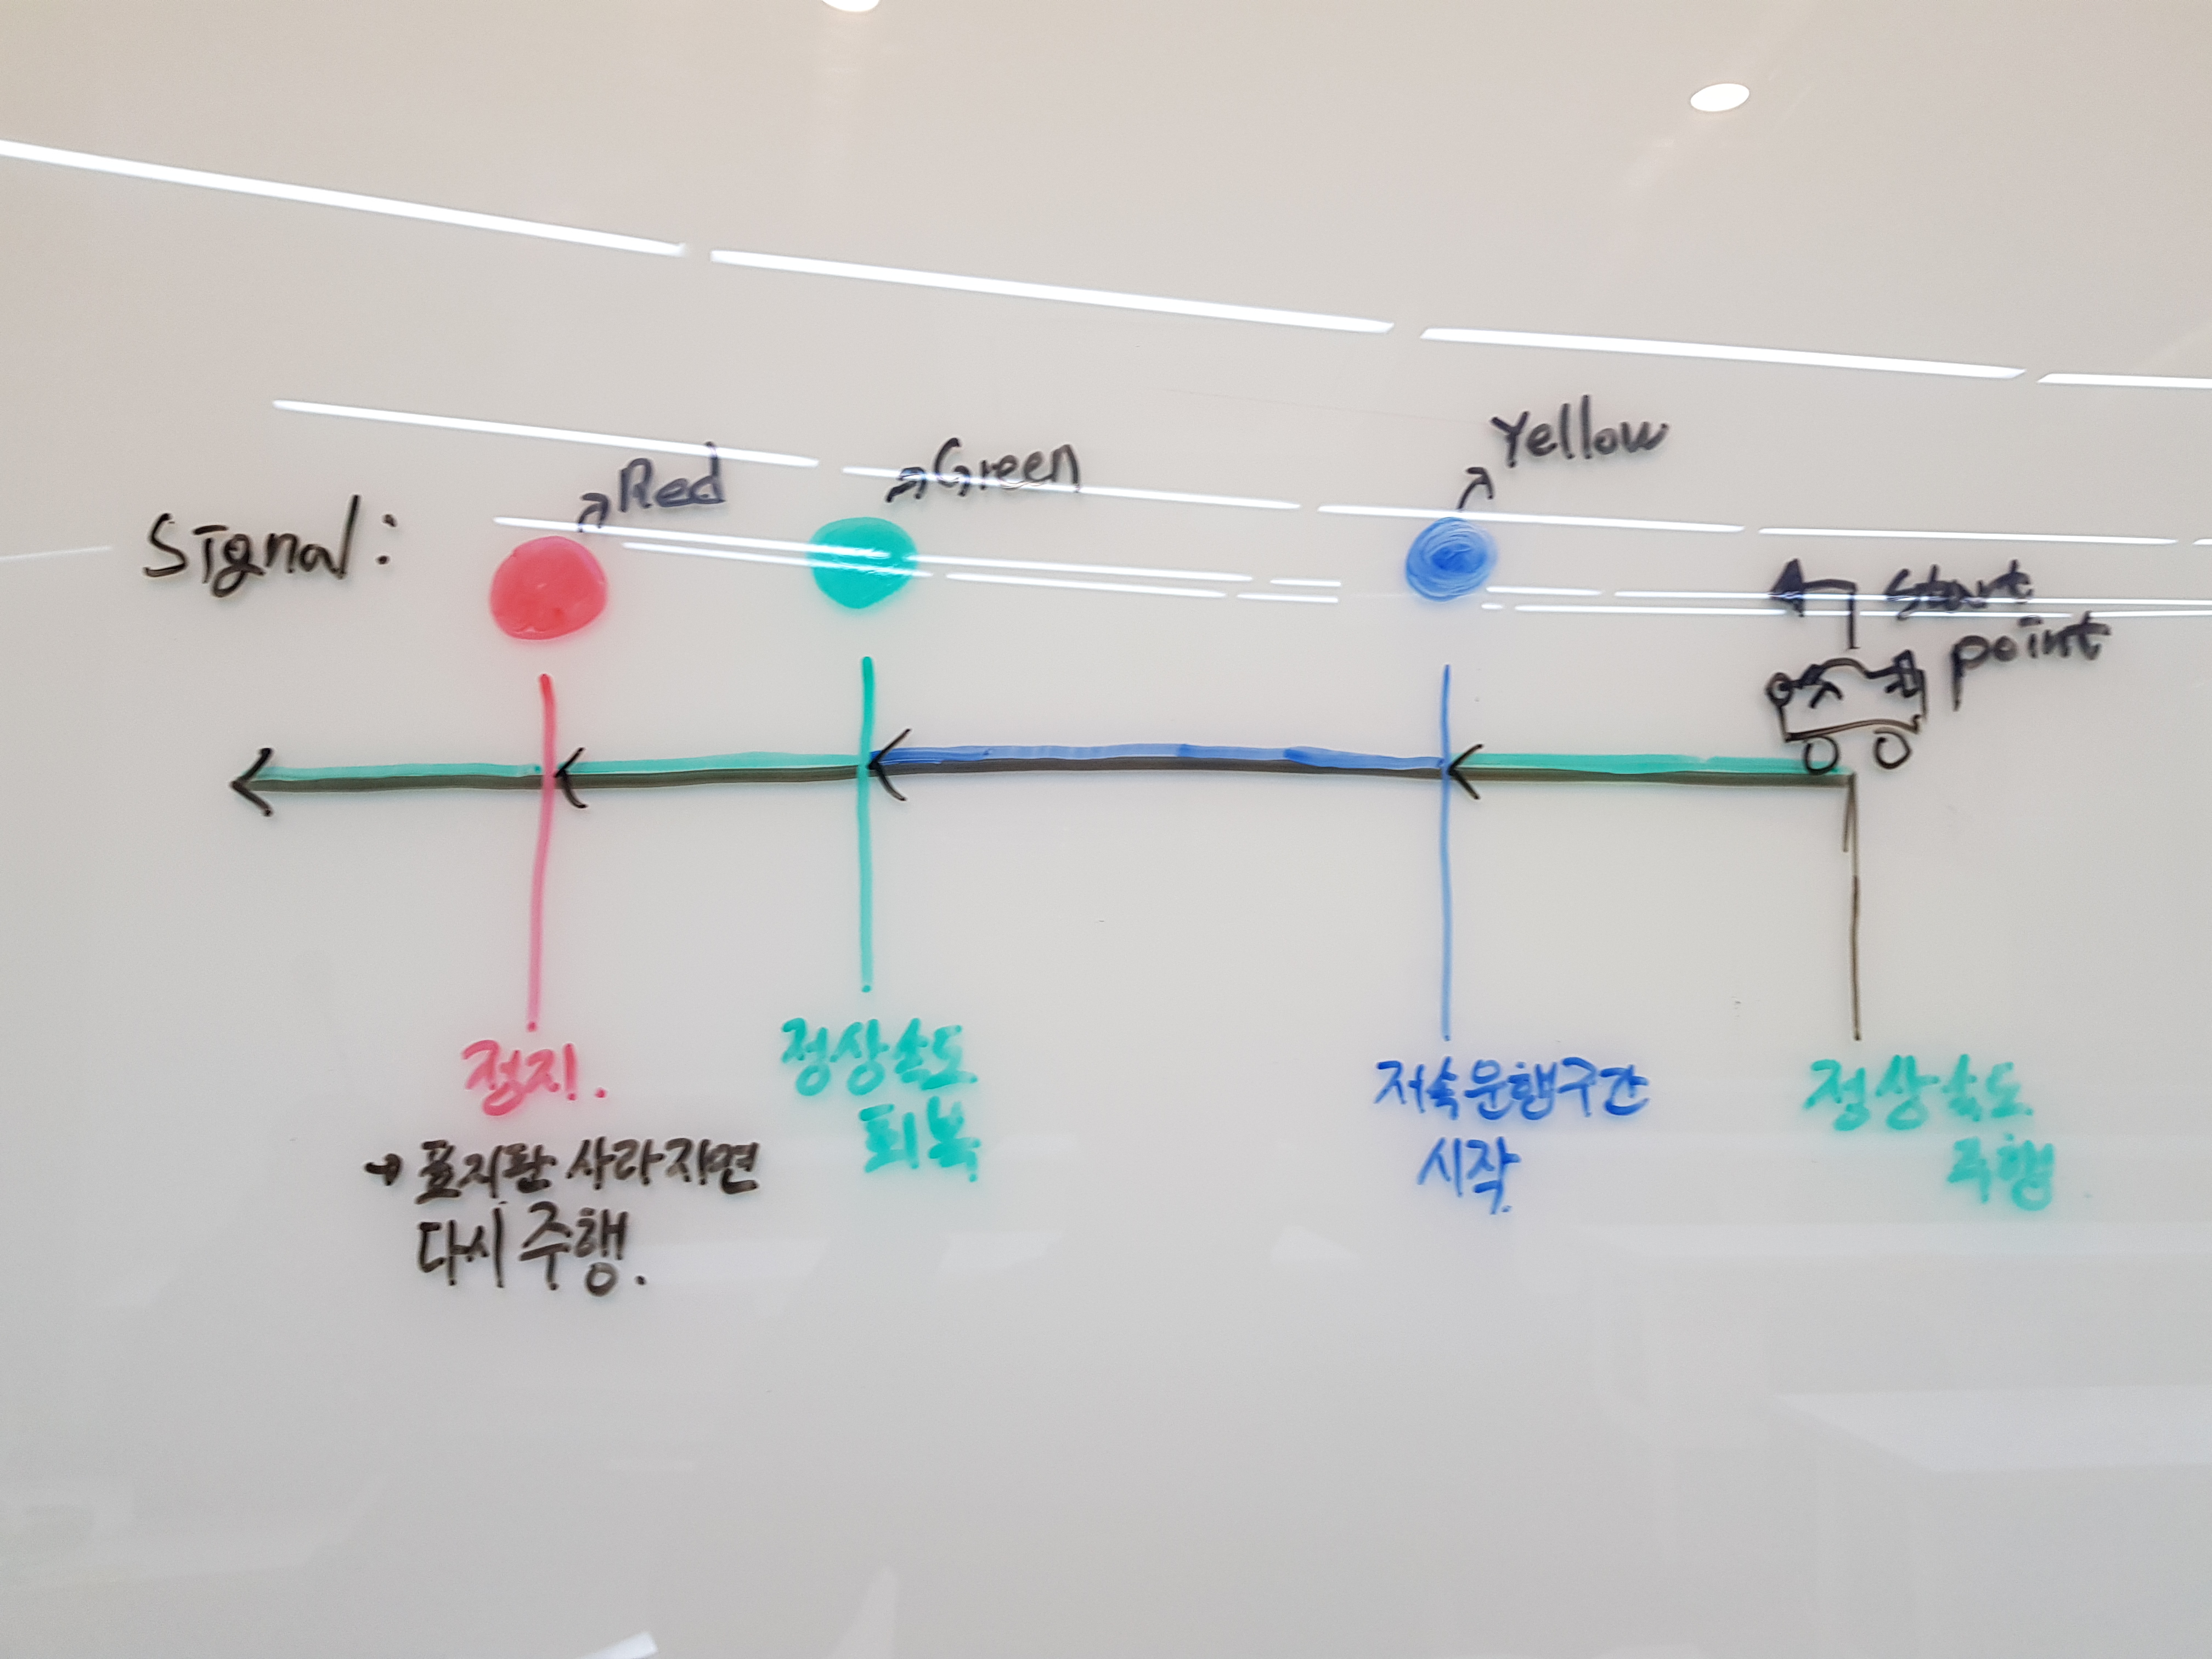 Signal:
Red
Green
Yellow
Start
point
정지.
→ 표지판 사라지면
다시 주행.
정상속도
회복
저속운행구간
시작.
정상속도
주행